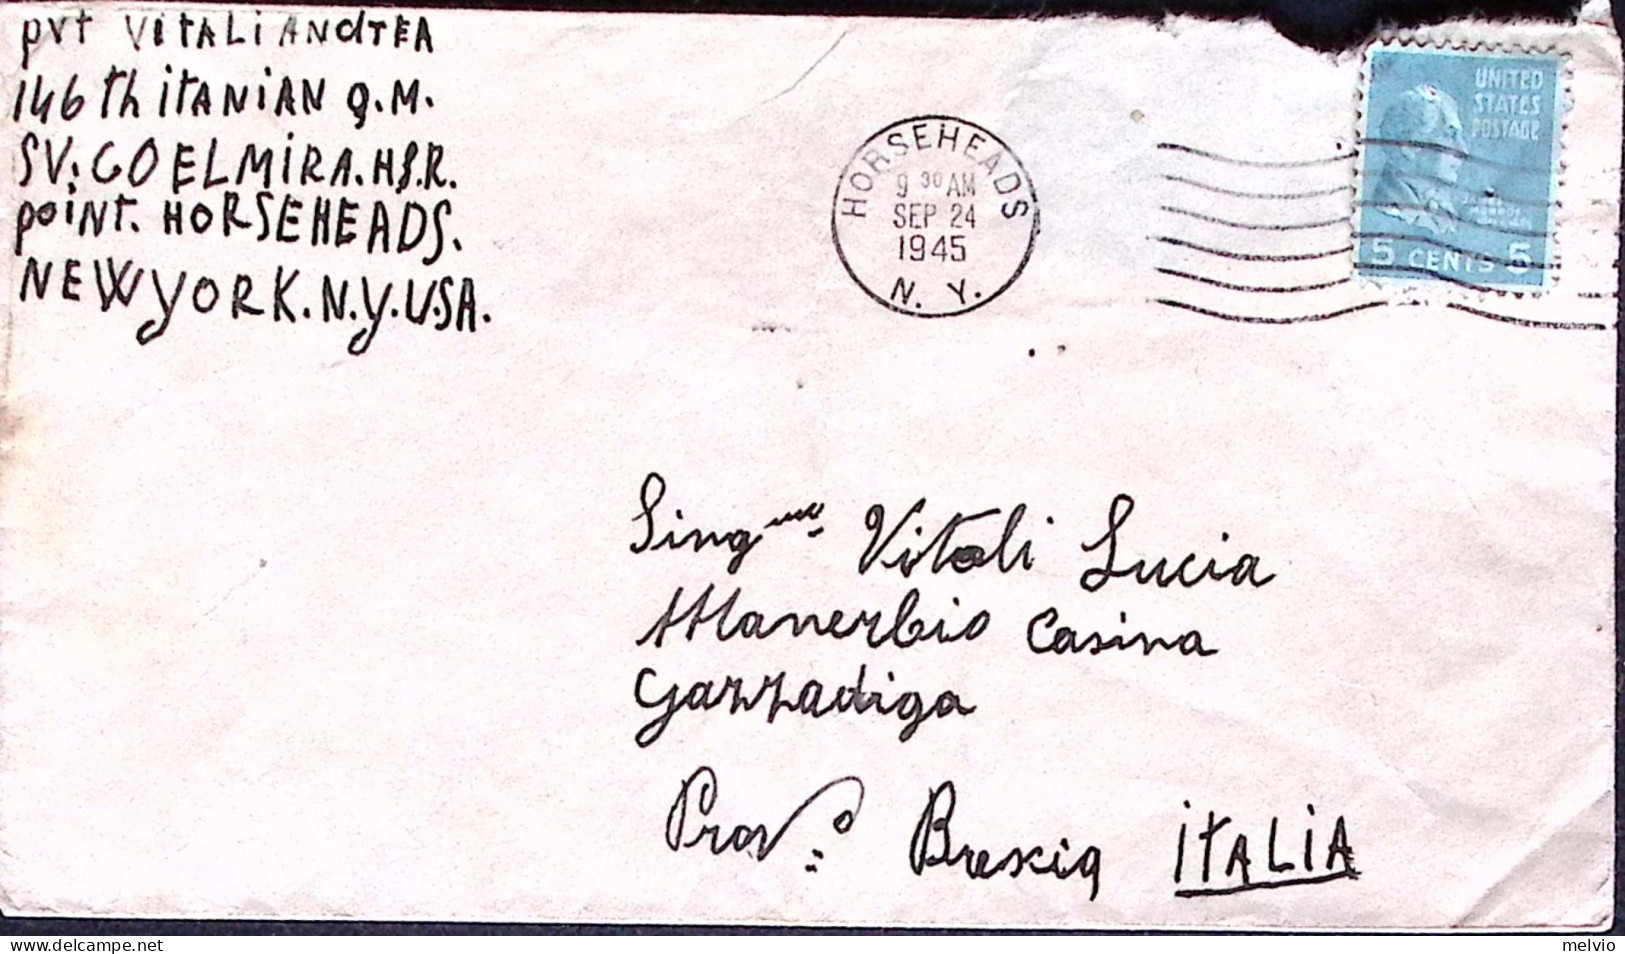 pvt VITALI ANdTEA
146 th iTANiAN Q.M.
SV: CO ELMiRA. H&.R.
POiNT. HORSEHEADS.
NEWYORK. N.Y. U.SA.
HORSEHEADS
9 30 AM
SEP 24
1945
N. Y.
UNITED
STATES
POSTAGE
5 CENTS 5
Vitali Lucia
Manerbio Casina
Gazzadiga
Prov.o Brexia iTALiA
melvio